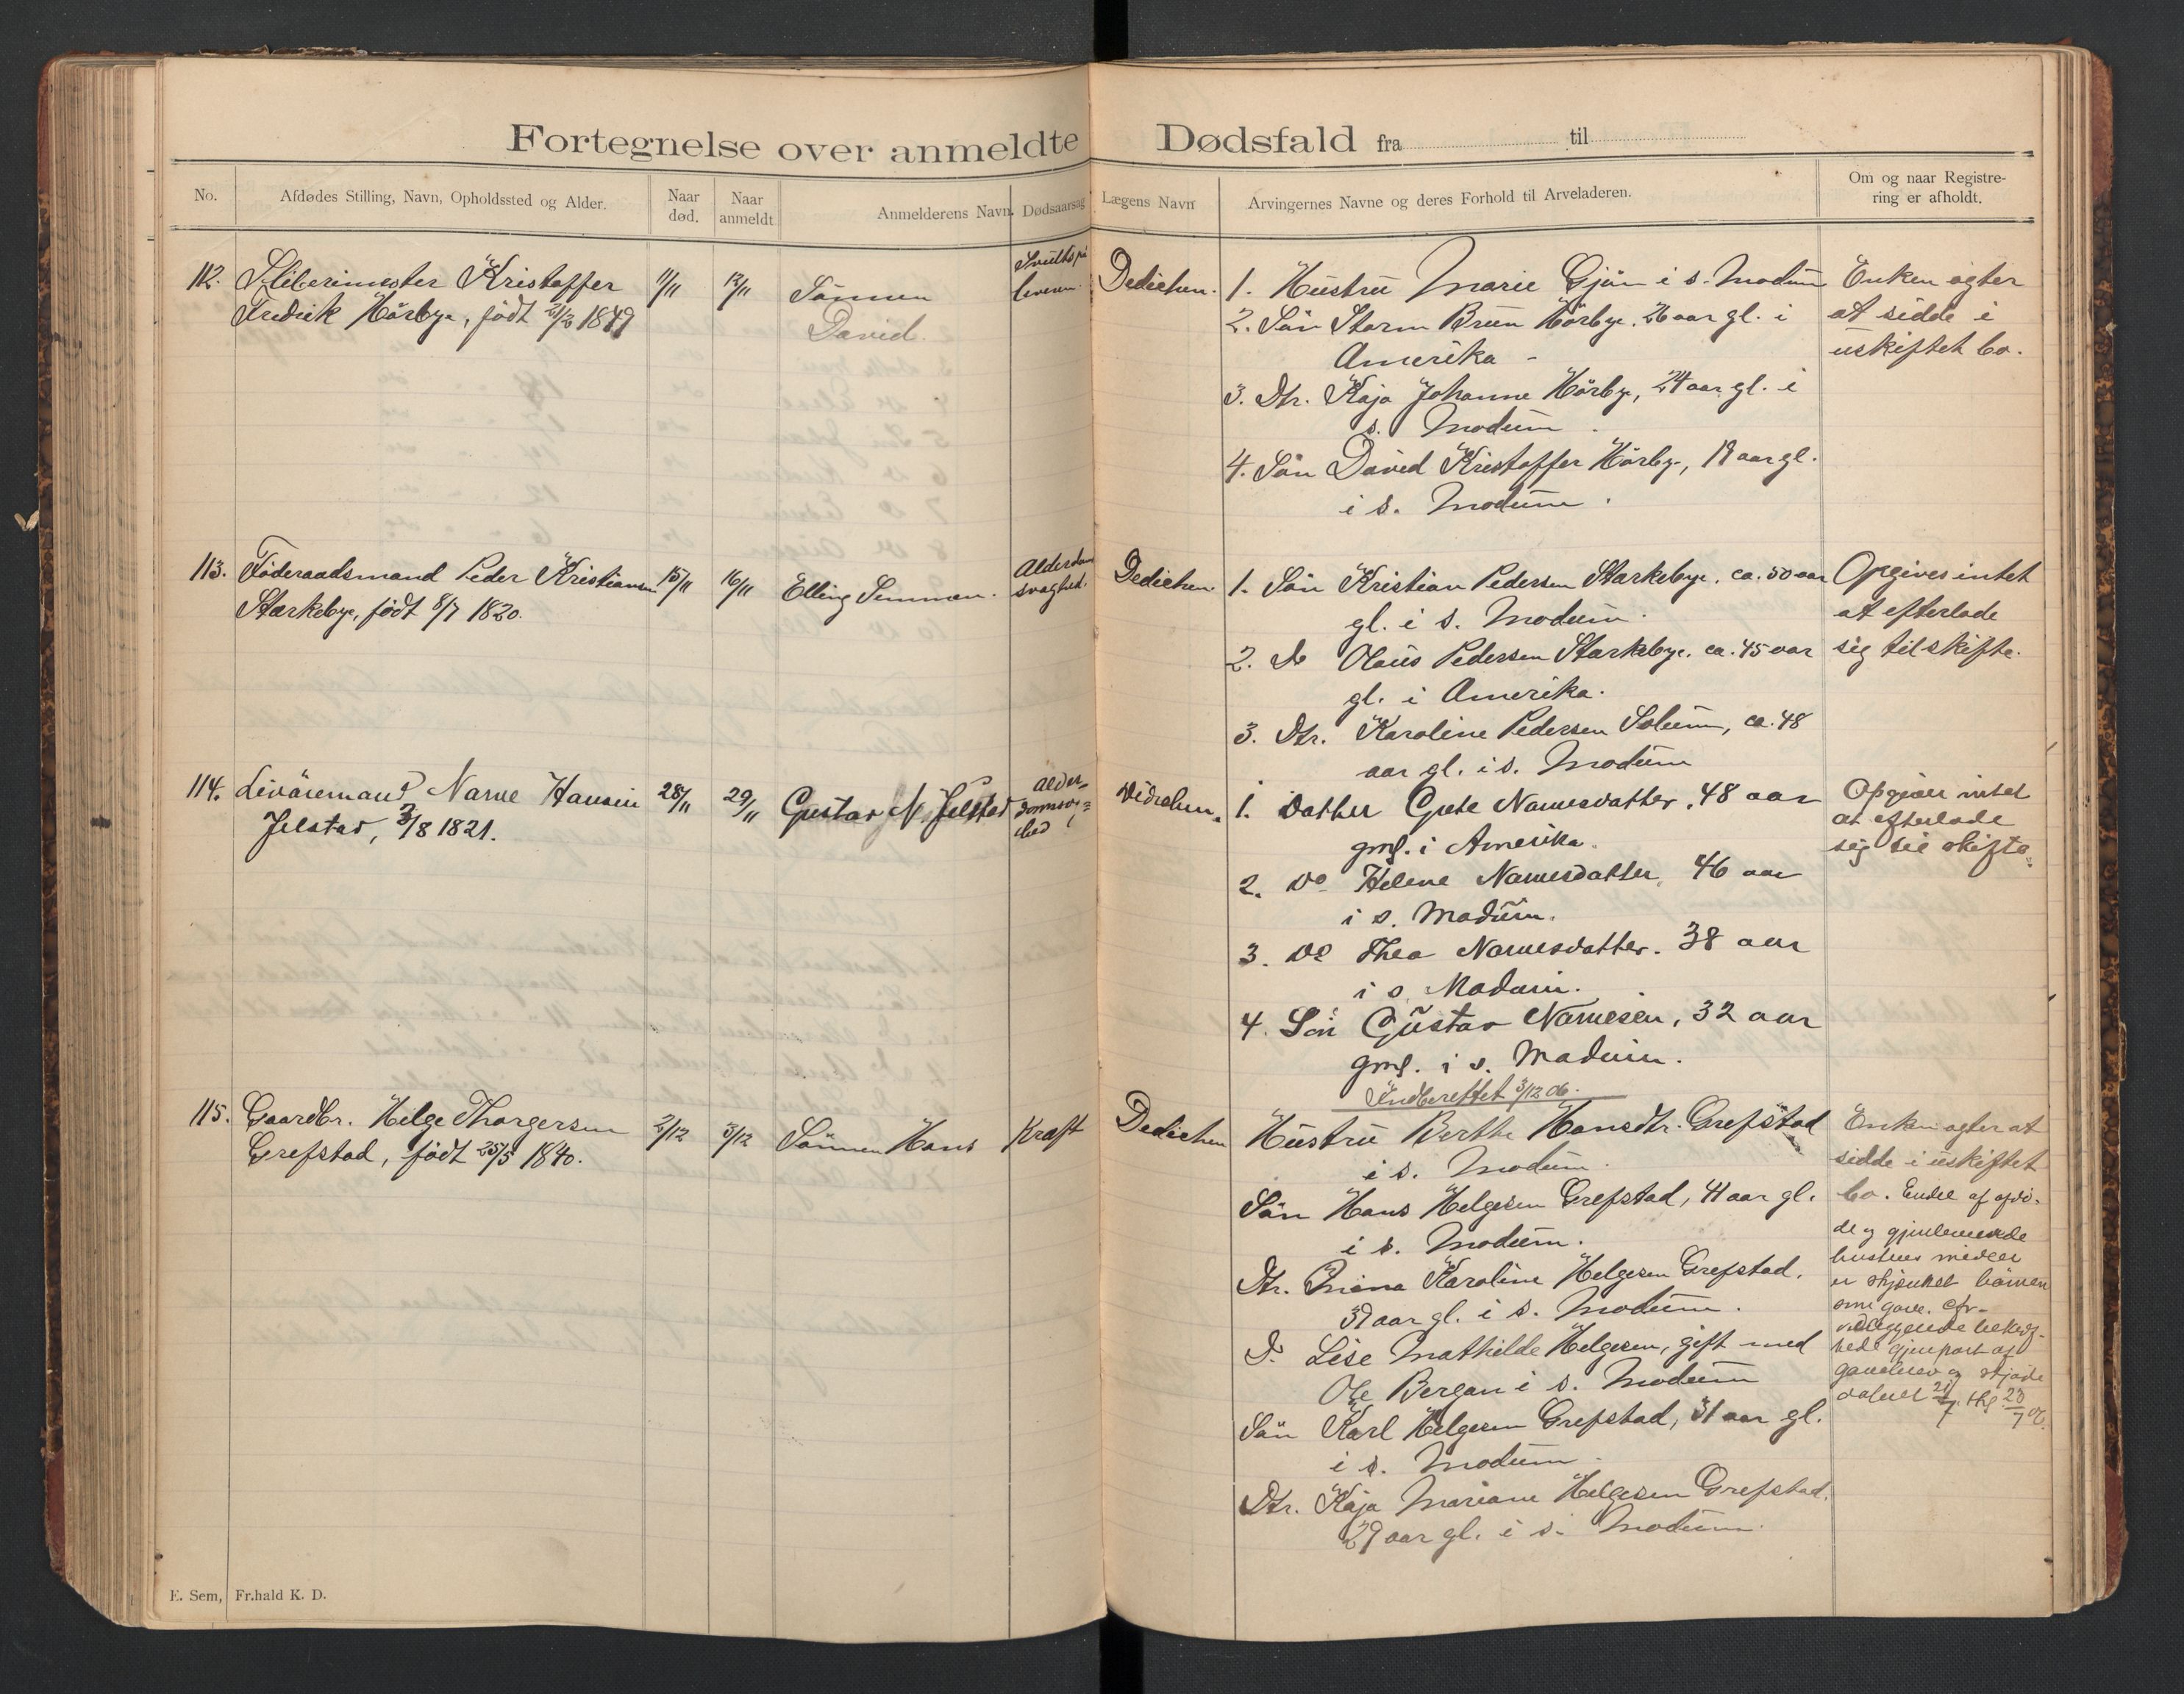 Fortegnelse over anmeldte Dødsfald fra til
No.
Afdødes Stilling, Navn, Opholdssted og Alder.
Naar død.
Naar anmeldt
Anmelderens Navn.
Dødsaarsag
Lægens Navn
Arvingernes Navne og deres Forhold til Arveladeren.
Om og naar Registre-
ring er afholdt.
112. Sliberimester Kristoffer
Fredrik Hörbye, födt 21/12 1849
11/11
12/11
Sönnen
David.
leveren.
Dedichen.
1. Hustru Marie Gjön i s. Modum
2. Sön Storm Brun Hörbye, 26 aar gl. i
Amerika -
3. Dtr. Kaja Johanne Hörbye, 24 aar gl. i
s. Modum
4. Sön David Kristoffer Hörbye, 18 aar gl.
i s. Modum.
Enken agter
at sidde i
uskiftet bo.
113. Föderaadsmand Peder Kristiansen
Stærkebye, födt 8/7 1820.
15/11
16/11
Elling Semmen.
Alderdom
svaghed.
Dedichen.
1. Sön Kristian Pedersen Stærkebye, ca. 50 aar
gl. i s. Modum.
2. do Olaus Pedersen Stærkebye. ca. 45 aar
gl. i Amerika.
3. Dtr. Karoline Pedersen Solum, ca. 48
aar gl. i s. Modum
Opgives intet
at efterlade
sig til skifte.
114. Livöremand Narve Hansen
Jelstad, 3/8 1821.
28/11
29/11
Gustav N. Jelstad
Alder-
domsvag=
hed
Didichen.
1. Datter Grete Narvesdatter, 48 aar
gml. i Amerika.
2. Do Helene Narvesdatter, 46 aar
i s. Modum.
3. Do Thea Narvesdatter. 38 aar
i s. Modum.
4. Sön Gustav Narvesen, 32 aar
gml. i s. Modum.
Opgives intet
at efterlade
sig til skifte.
Indberettet 3/12 06.
115. Gaardbr. Helge Thorgersen
Grefstad, födt 25/5 1840.
2/12
3/12
Sönnen Hans
Kræft
Dedichen
Hustru Berthe Hansdtr. Grefstad
i s. Modum.
Sön Hans Helgesen Grefstad, 41 aar gl.
i s. Modum.
Dtr. Karoline Helgesen Grefstad,
39 aar gl. i s. Modum.
D. Lise Mathilde Helgesen, gift med
Ole Bergan i s. Modum
Sön Karl Helgesen Grefstad, 31 aar gl.
i s. Modum.
Dtr. Kaja Mariane Helgesen Grefstad,
29 aar gl. i s. Modum.
Enken agter at
sidde i uskiftet
bo. Endel af afdö-
de og gjenlevende
hustrus midler
er skjænket börnen
som gave. Cfr.
vedliggende bekræf-
tede gjenpart af
gavebrev og skjöde
dateret 21/7. thl. 23/7 06.
E. Sem, Fr.hald K. D.